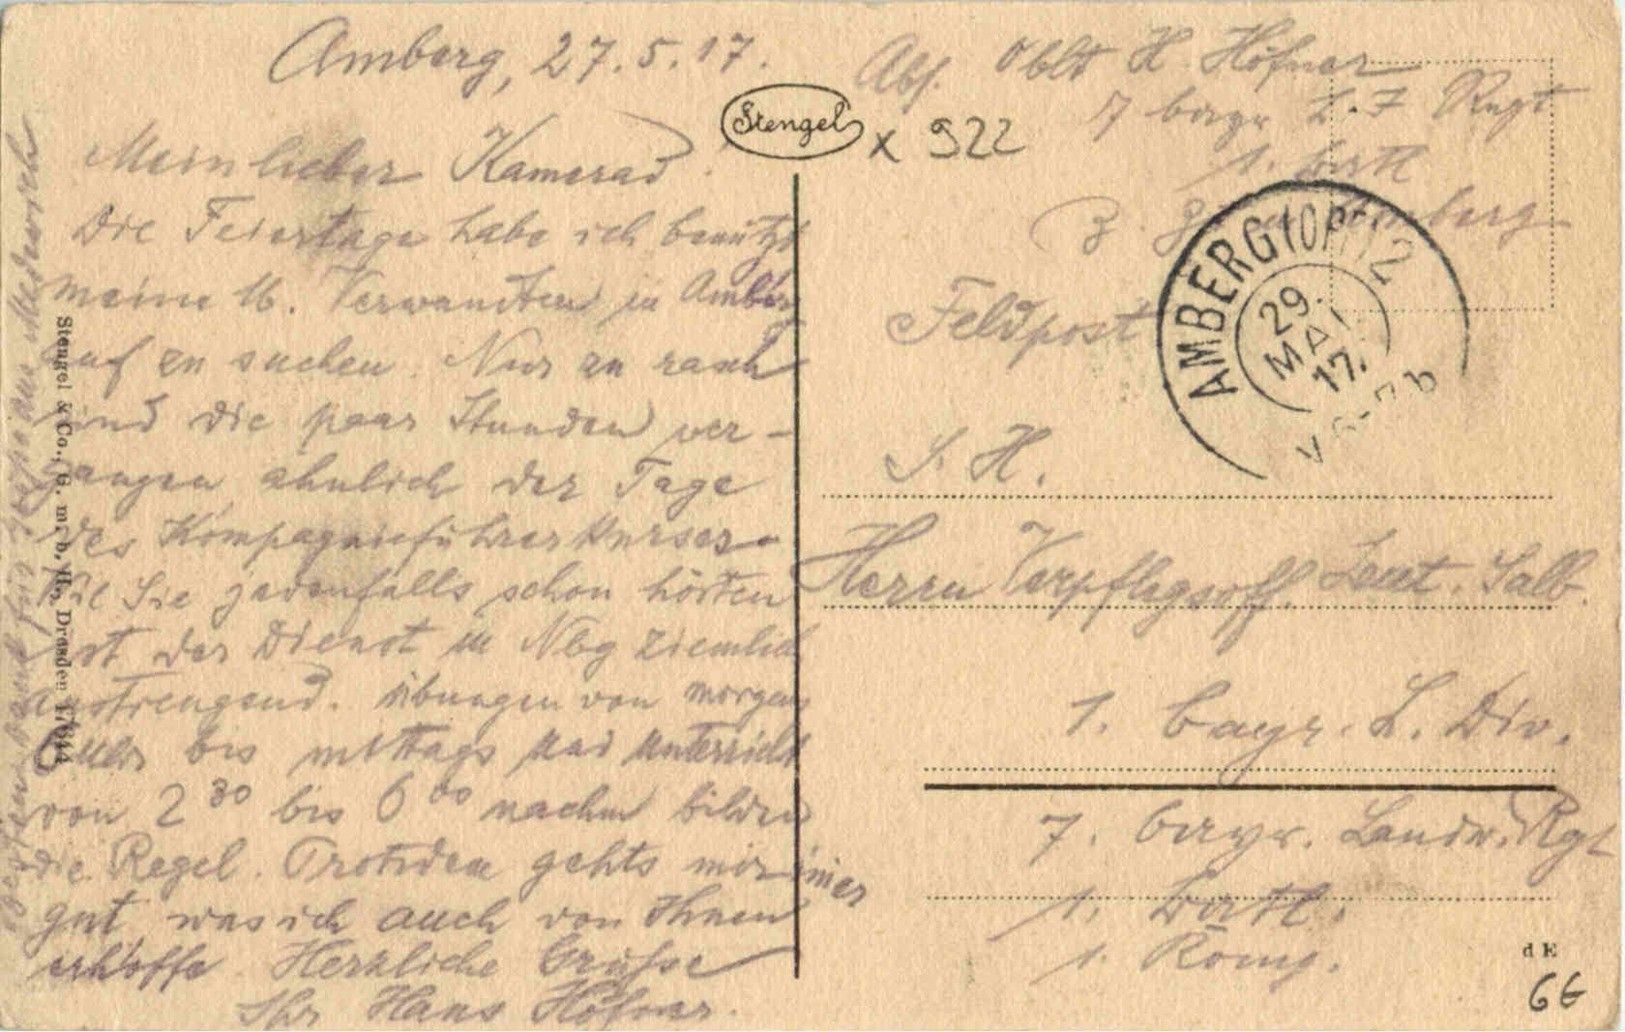 Amberg, 27.5.17.
Mein lieber Kamerad
Die Feiertage habe ich benützt
meine lb. Verwandten in Amberg
auf zu suchen. Nur zu rasch
sind die paar Stunden ver-
gangen ähnlich der Tage
des Kompagnieführerkurses.
Sie jedenfalls schon hörten
ist der Dienst in Nbg ziemlich
anstrengend. Übungen von morgens
bis mittags und Unterricht
von 2 30 bis 6 00 nachm bilden
die Regel. Trotzdem gehts mir immer
gut, was ich auch von Ihnen
erhoffe. Herzliche Grüsse
Ihr Hans Höfner.
Wiedersich
Stengel & Co., G. m. b. H., Dresden
Stengel
x 922
Abs. Oblt H. Höfner
7 bayr L. I Regt
1. Batl
Z. Amberg
Feldpost
AMBERG (OPF) 2
29.
MAI
17.
S. H.
Herrn Verpflegsoff. Leut. Salb.
1. bayr. L. Div.
7. bayr. Landw. Rgt
1. Batl.
1. Komp.
d E
6 €